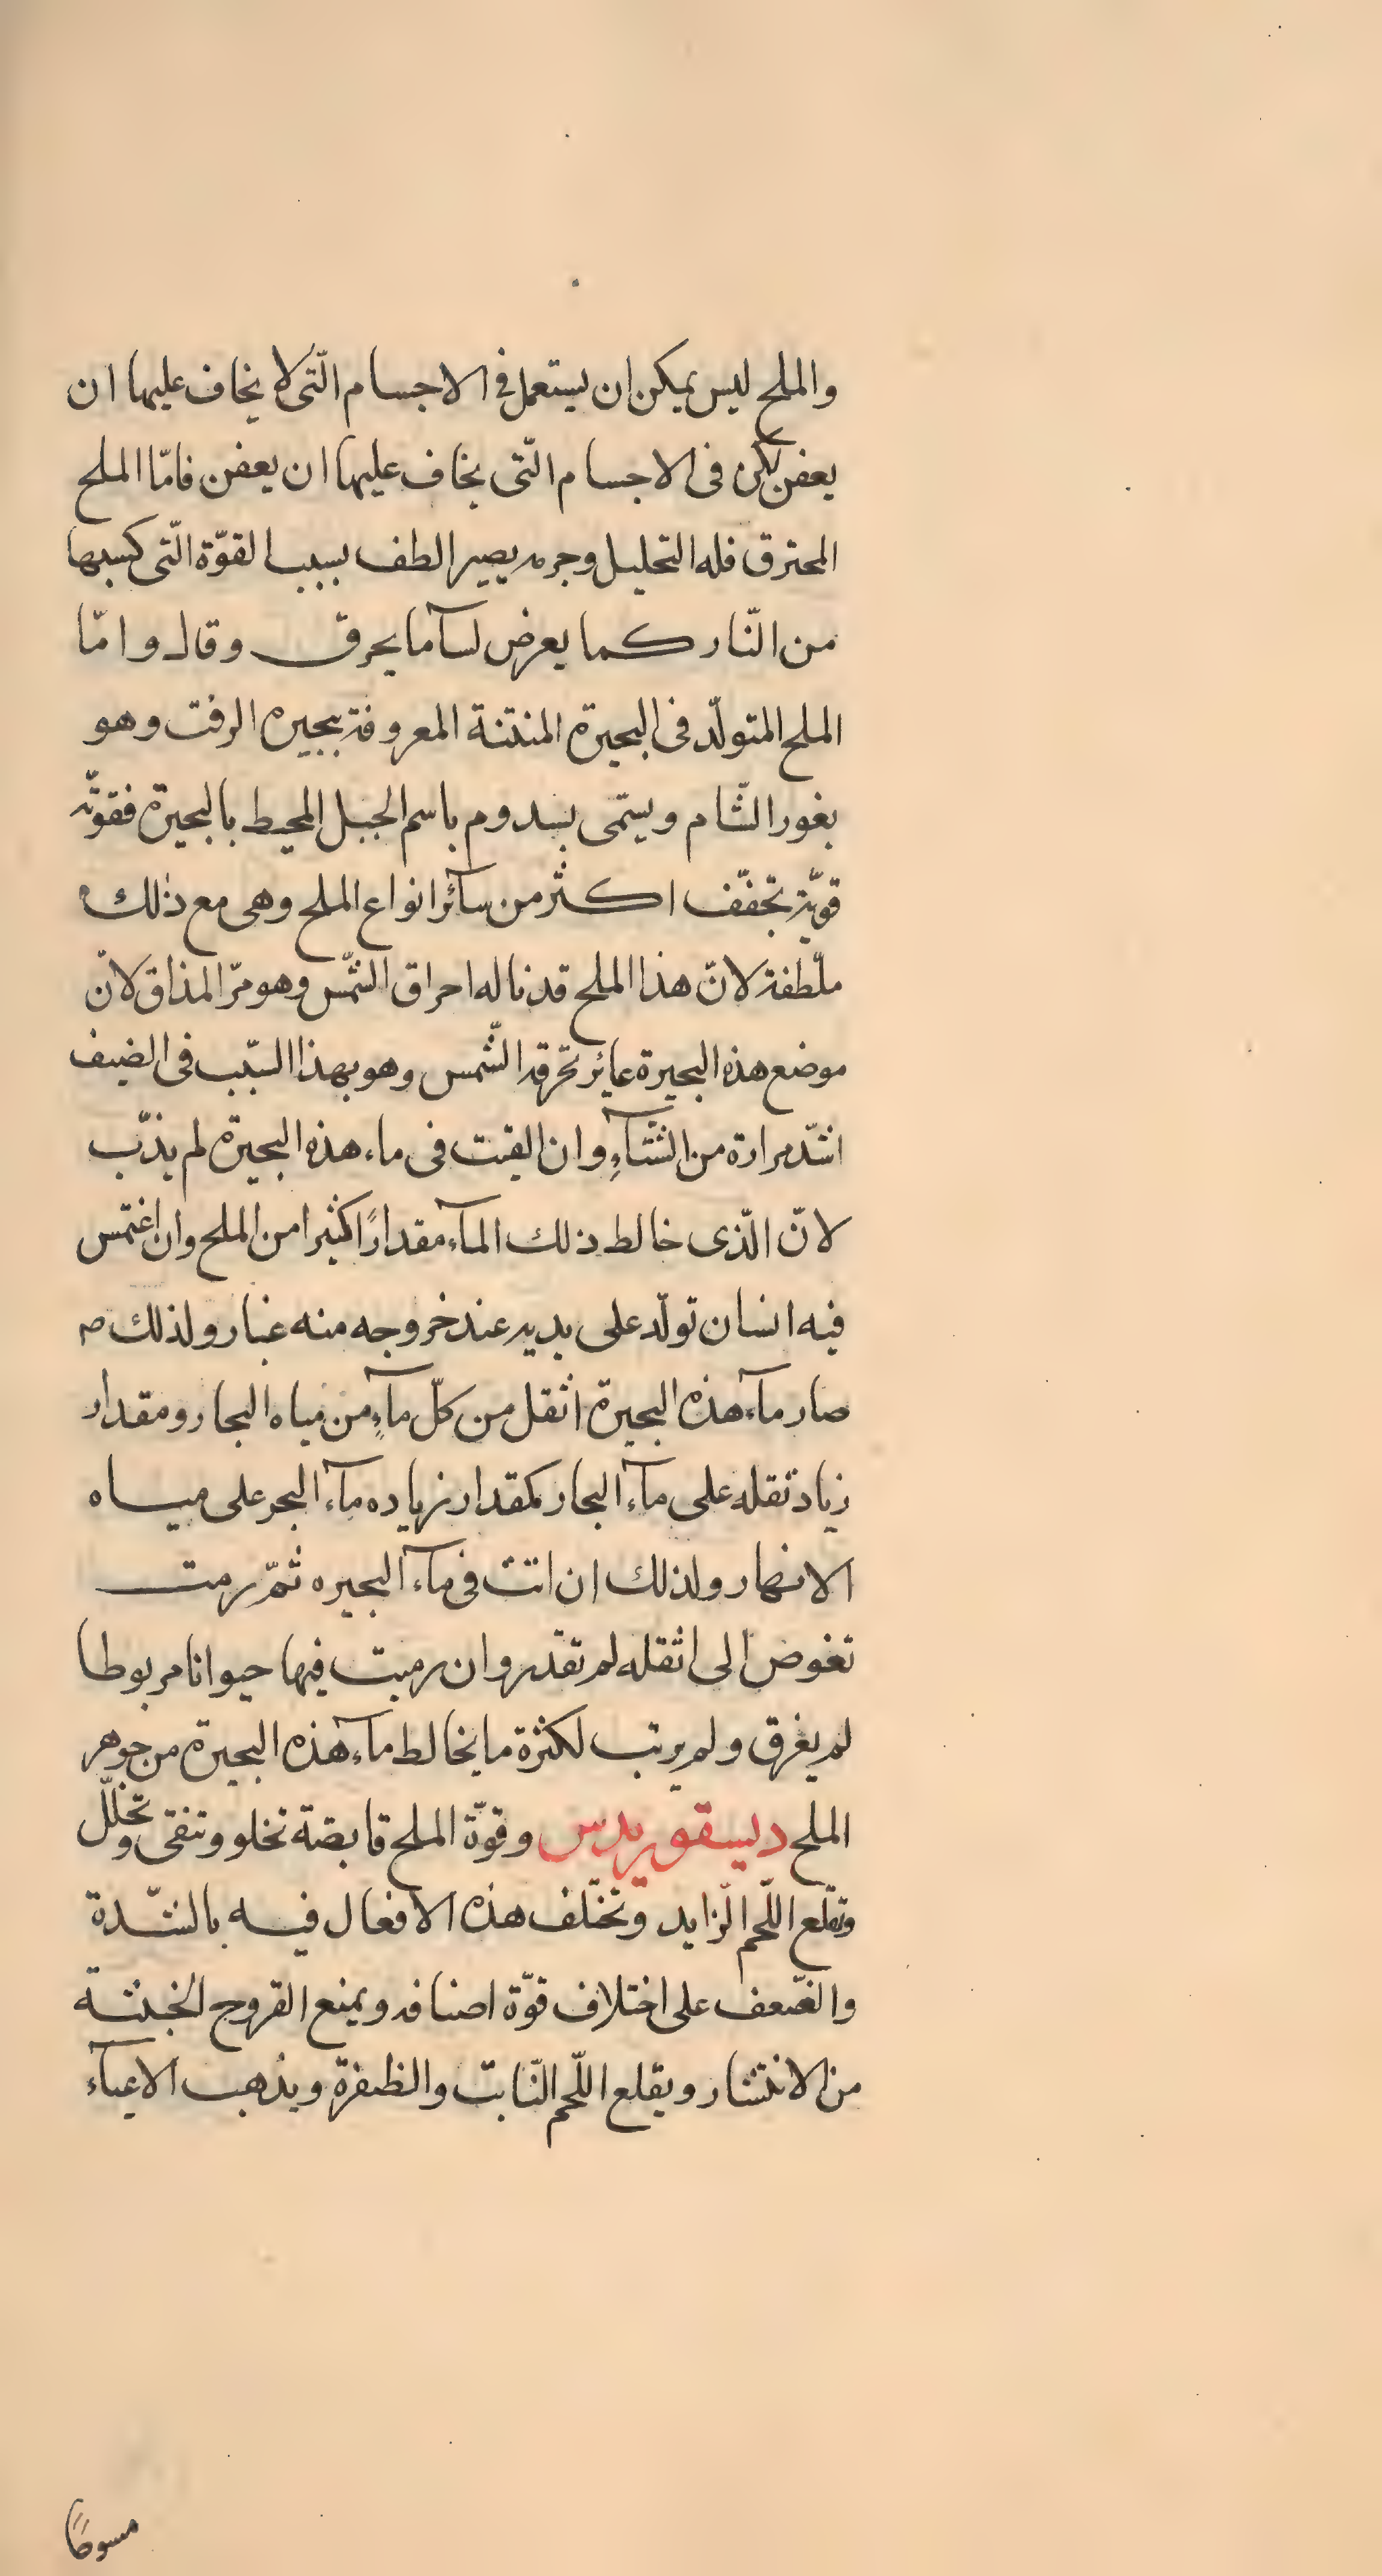 والملح ليس يمكن ان يستعمل في الاجسام الّتى لا يخاف عليها ان
يعفن لكن فى الاجسام الّتى يخاف عليها ان يعفن فامّا الملح
المحترق فله التحليل وجرمه يصير الطف بسبب القوّة الّتى كسبها
من النّار كما يعرض لسآ ما يحرق وقال وامّا
الملح المتولّد فى البحيرة المنتنة المعروفة ببحيره الزفت وهو
بغور الشّام ويسمّى بسدوم باسم الجبل المحيط بالبحيرة فقوّته
قويّة تجفّف اكثر من سآئر انواع الملح وهى مع ذلك
ملّطفة لانّ هذا الملح قد ناله احراق الشّمس وهو مرّ المذاق لانّ
موضع هذه البحيرة غاير تحرقه الشّمس وهو بهذا السّبب فى الصيف
اشدّ مرارة من الشّتآءِ وان القيت فى ماء هذه البحيرة لم يذّب
لانّ الّذى خالط ذلك المآء مقدارًا كثيرا من الملح وان اغتمس
فيه انسان تولّد على بدنه عند خروجه منه غبار ولذلك
صار مآء هذه البحيرة اثقل من كلّ مآءٍ من مياه البحار ومقدار
زياد ثقله على مآء البحار كمقدار زياده مآء البحر على مياه
الانهار ولذلك ان انت فى مآء البحيره ثمّ رمت
تغوض الى اثقله لم تقدر وان رميت فيها حيوانا مربوطا
لم يغرق ولم يرتب لكثرة ما يخالط مآء هذه البحيرة من جوهر
الملح ديسقوريدس وقوّة الملح قابضة تخلو وتنقى وتحلّل
وتقلع اللّحم الزايد وتختلف هذه الافعال فيه بالشّدة
والضّعف على اختلاف قوّة اصنافه ويمنع القروح الخبيثة
من الانتشار ويقلع اللّحم النّابت والظفرة ويذهب الاعيآء